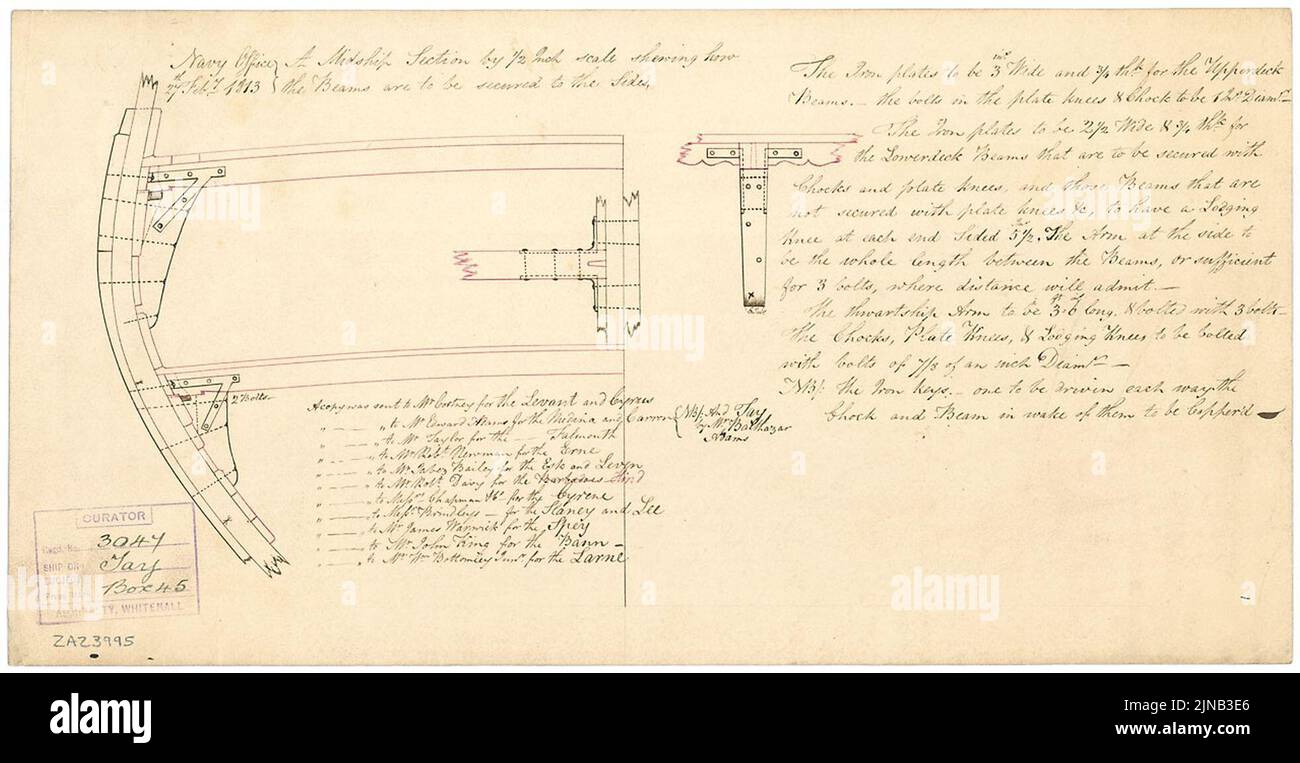 Navy Office } A Midship Section by 1/2 Inch scale shewing how
27th Feby 1813 } the Beams are to be secured to the Sides,
The Iron plates to be 3 ins Wide and 3/4 thk for the Upperdeck
Beams. — the bolts in the plate knees & Chock to be 1 In Diamr —
The Iron plates to be 2 1/2 Wide & 3/4 thk for
the Lowerdeck Beams that are to be secured with
Chocks and plate knees, and those Beams that are
not secured with plate knees &c, to have a Lodging
Knee at each end Sided 5 1/2 ins. The Arm at the side to
be the whole length between the Beams, or sufficient
for 3 bolts, where distance will admit. —
The thwartship Arm to be 3ft 6 long, & bolted with 3 bolts —
The Chocks, Plate Knees, & Lodging Knees to be bolted
with bolts of 7/8 of an inch Diamr —
NB/: the Iron keys. — one to be driven each way. the
Chock and Beam in wake of them to be Copper'd —
2 Bolts
A copy was sent to Mr Courtney for the Levant and Cyrus
" — " to Mr Edward Adams for the Medina and Carron { NB/: And Tay
by Mr Balthazar
Adams
" — " to Mr Taylor for the — Falmouth
" — " to Mr Robt Newman for the Erne
" — " to Mr Jabez Bailey for the Esk and Leven
" — " to Mr Robt Davy for the Barbadoes Hind
" — to Messrs Chapman & Co for the Cyrene
" — to Messrs Brindleys — for the Slaney and Lee
" — to Mr James Warwick for the Spey
" — to Mr John King for the Bann —
" — to Mr Wm Bottomley Junr for the Larne
CURATOR
Regd. No. 3047
SHIP OR Tay
Box 45
ADMIRALTY, WHITEHALL
ZAZ3995
alamy
alamy
alamy
alamy
alamy
alamy
Image ID: 2JNB3E6
www.alamy.com